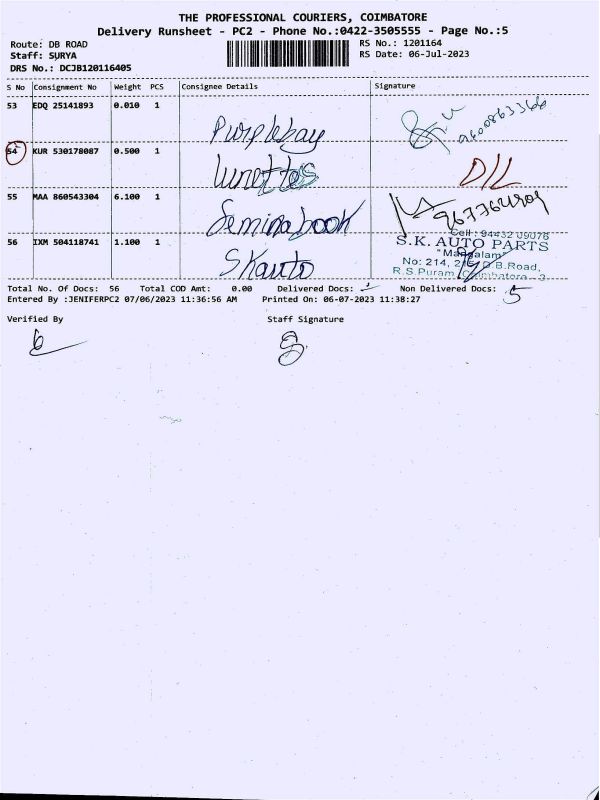 THE PROFESSIONAL COURIERS, COIMBATORE
Delivery Runsheet - PC2 - Phone No.:0422-3505555 - Page No.:5
Route: DB ROAD RS No.: 1201164
Staff: SURYA RS Date: 06-Jul-2023
DRS No.: DCJB120116405
S No Consignment No Weight PCS Consignee Details Signature
53 EDQ 25141893 0.010 1
Purplebay 9600863366
54 KUR 530178087 0.500 1
Lunettes D/L
55 MAA 860543304 6.100 1
Seminabook
Cell : 94432 09076
56 IXM 504118741 1.100 1 S.K. AUTO PARTS
Skauto "Mangalam"
No: 214, D.B.Road,
R.S.Puram, Coimbatore - 2
Total No. Of Docs: 56 Total COD Amt: 0.00 Delivered Docs: Non Delivered Docs: 5
Entered By :JENIFERPC2 07/06/2023 11:36:56 AM Printed On: 06-07-2023 11:38:27
Verified By Staff Signature